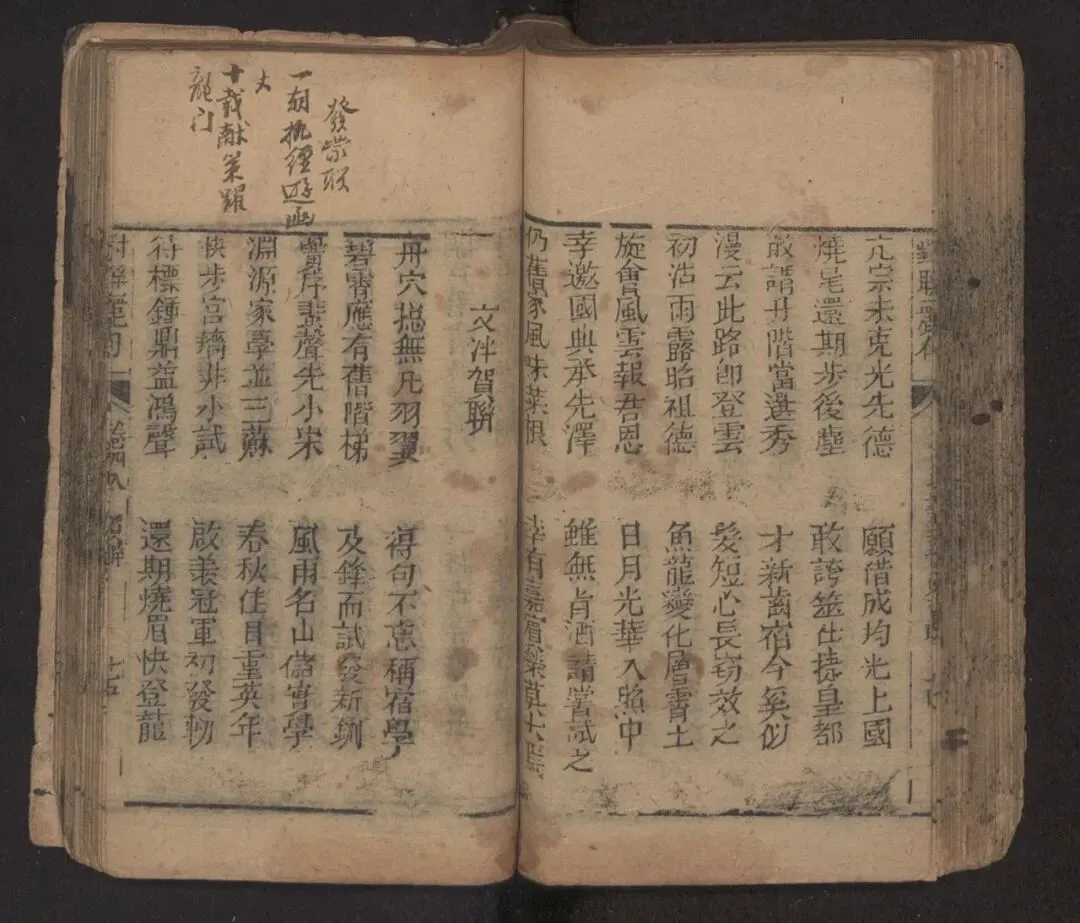 亢宗未克光先德
願借成均光上國
燒尾還期步後塵
敢誇筮仕捷皇都
敢謂丹階當選秀
才新齒宿今奚似
漫云此路卽登雲
髮短心長竊效之
初沾雨露昭祖德
魚龍變化層霄上
旋會風雲報君恩
日月光華入照中
幸邀國典承先澤
雖無肯酒請嘗試之
仍舊家風味菜根
幸有嘉賓
文泮賀聯
丹穴總無凡羽翼
得句不忘稱宿學
碧霄應有舊階梯
及鋒而試發新鉶
蜚聲先小宋
風雨名山儲實學
淵源家學並三蘇
春秋佳日重英年
步宮牆非小試
啟羨冠軍初發軔
待標鍾鼎益鴻聲
還期燒眉快登龍
卷四
七五
發棠聯
一朝執經遊
丈
十載献策躍
龍门